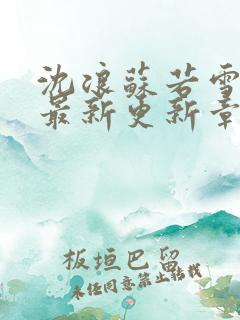 沈浪蘇若雪
最新更新章
板垣巴留
未经同意禁止转载